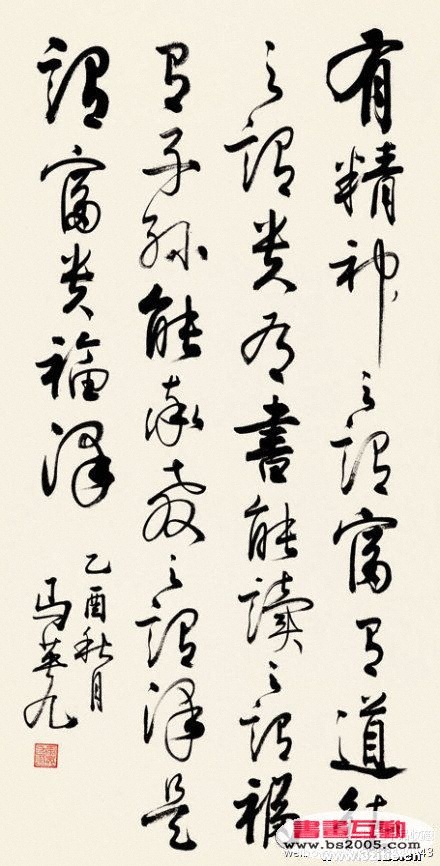 有精神之謂富有道德
之謂貴有書能讀之謂福
有子孫能承教之謂澤是
謂富貴福澤
乙酉秋月
馬英九
書畫互動
www.bs2005.com